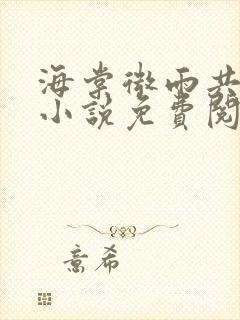 海棠微雨共
小說免費閱
意希